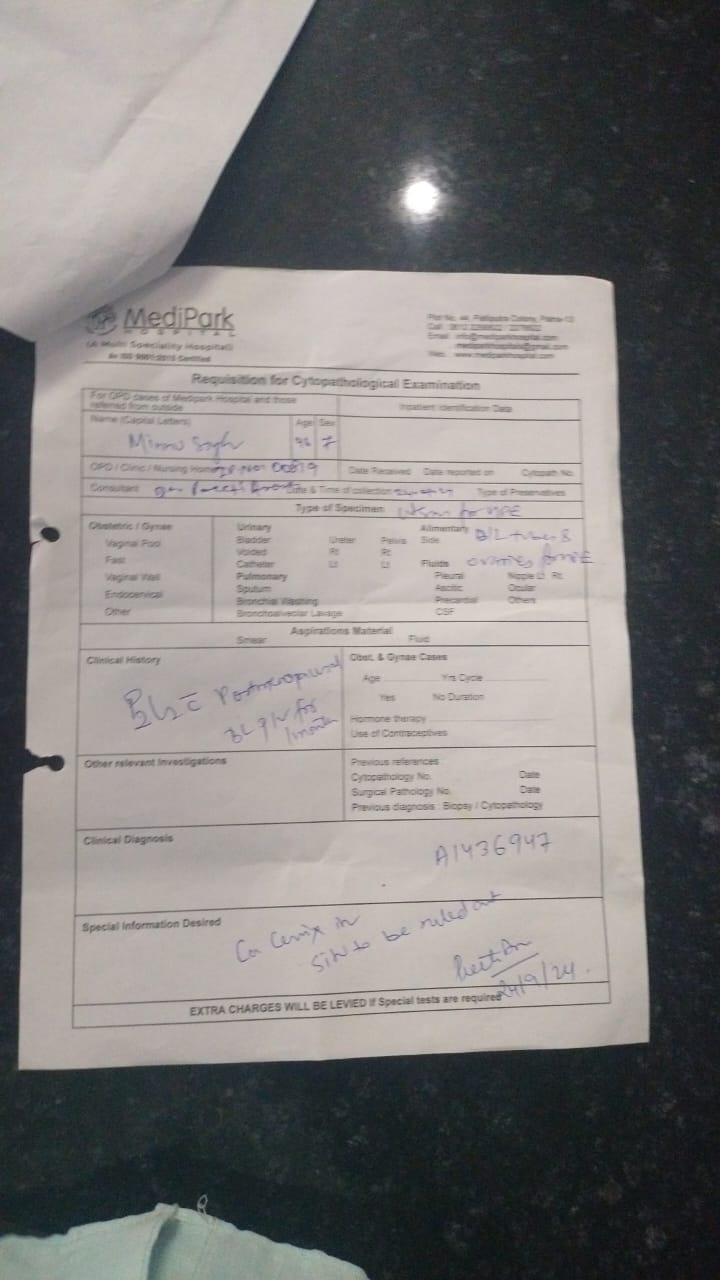 MediPark
HOSPITAL
(A Multi Speciality Hospital)
An ISO 9001:2015 Certified
Plot No. 44, Patliputra Colony, Patna-13
Email : info@mediparkhospital.com
mediparkhospital@gmail.com
Web : www.mediparkhospital.com
Requisition for Cytopathological Examination
For OPD cases of Medipark Hospital and those
referred from outside
Inpatient Identification Data
Name (Capital Letters) Age Sex
OPD / Clinic / Nursing Home 00819 Date Received Date reported on Cytopath No.
Consultant Date & Time of collection Type of Preservatives
Type of Specimen
Obstetric / Gynae Urinary Alimentary
Vaginal Pool Bladder Ureter Pelvis Side B/L tubes &
Fast Voided Rt Rt
Catheter Lt Lt Fluids ovaries for
Vaginal Wall Pulmonary Pleural Nipple Lt Rt
Endocervical Sputum Ascitic Ocular
Bronchial Washing Precardial Others
Other Bronchoalveolar Lavage CSF
Aspirations Material
Smear Fluid
Clinical History
Postmenopausal
for
1 month
Obst. & Gynae Cases
Age Yrs Cycle
Yes No Duration
Hormone therapy
Use of Contraceptives
Other relevant Investigations
Previous references
Cytopathology No. Date
Surgical Pathology No. Date
Previous diagnosis : Biopsy / Cytopathology
Clinical Diagnosis
A1436947
Special Information Desired
Ca Cervix in
situ to be ruled out
24/9/24.
EXTRA CHARGES WILL BE LEVIED If Special tests are required